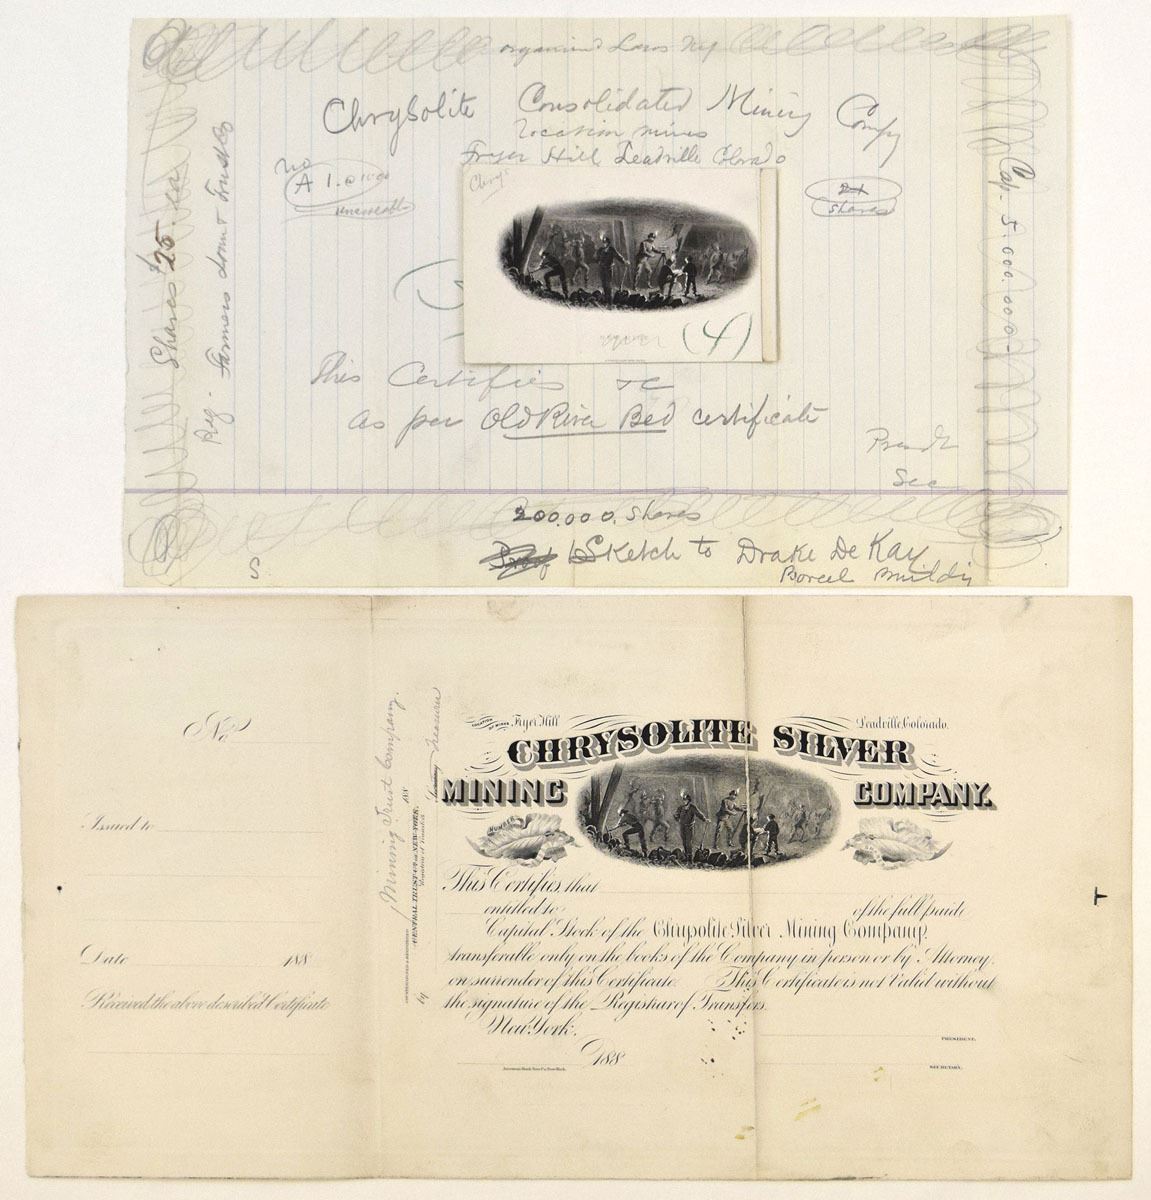 organized Laws NY
Chrysolite Consolidated Mining Compy
location mines
Fryer Hill Leadville Colorado
No
A 1. @ 1000
shares
Shares $25. ea
Reg. Farmers Loan & Trust Co
Cap. 5.000.000-
Chrys
(4)
This Certifies &c
as per Old River Bed certificate
Presdt
Sec
200.000. Shares
Sketch to Drake De Kay
Boreel Buildg
S
No.
Issued to
Date 188
Received the above described Certificate
Mining Trust Company.
188
CENTRAL TRUST CO. OF NEW YORK.
by
Treasurer
LOCATION OF MINES Fryer Hill Leadville, Colorado.
CHRYSOLITE SILVER
MINING COMPANY.
NUMBER
This Certifies that
entitled to of the full paid
Capital Stock of the Chrysolite Silver Mining Company,
transferable only on the books of the Company in person or by Attorney,
on surrender of this Certificate. This Certificate is not Valid without
the signature of the Registrar of Transfers.
New York,
188
PRESIDENT.
SECRETARY.
American Bank Note Co. New York.